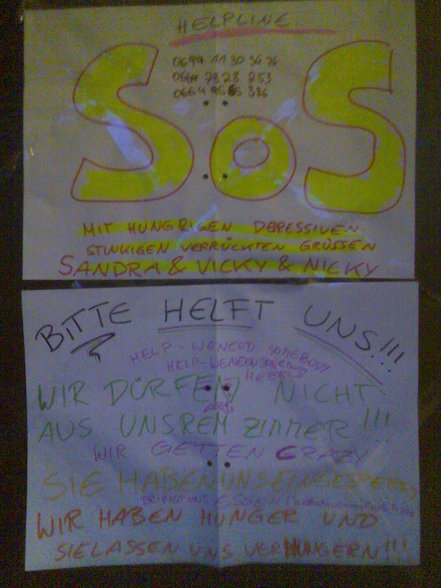 HELPLINE
SOS
MIT HUNGRIGEN DEPRESSIVEN
STINKIGEN VERRÜCKTEN GRÜSSEN
SANDRA & VICKY & NICKY
BITTE HELFT UNS!!!
HELP-WENEED SOMEBODY
HELP-WENEED
WIR DÜRFEN NICHT
AUS UNSREM ZIMMER!!!
WIR GETTEN CRAZY
SIE HABENUNSEINGESPERRT
WIR HABEN HUNGER UND
SIELASSEN UNS VERHUNGERN!!!